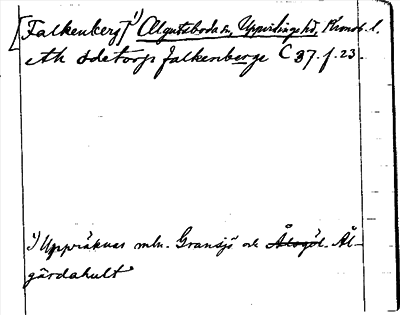 [Falkenberg]¹⁾ Algutsboda sn, Uppvidinge hd, Kronob. l.
eth ödetorp falkenberge C 37. f. 23
¹⁾ Uppräknas mln. Gransjö och Älvgöl. Äl-
gärdahult